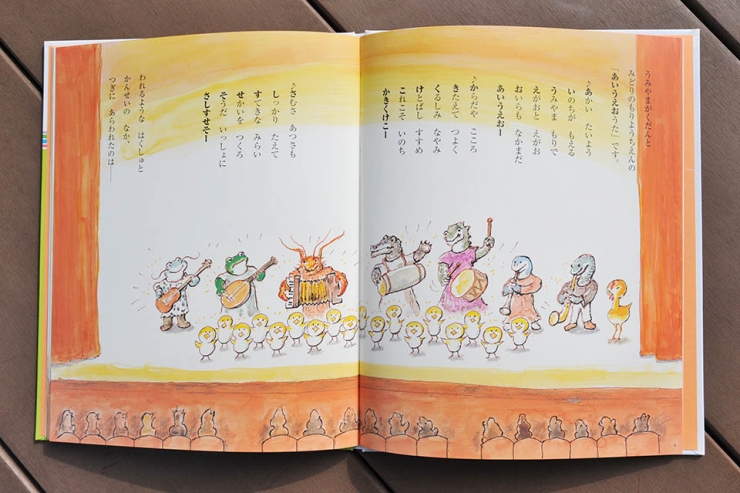 うみやまがくだんと
みどりのもりようちえんの
「あいうえおうた」です。
♪あかい たいよう
いのちが もえる
うみやま もりで
えがおと えがお
おいらも なかまだ
あいうえおー
♪からだや こころ
きたえて つよく
くるしみ なやみ
けとばし すすめ
これこそ いのち
かきくけこー
♪さむさ あつさも
しっかり たえて
すてきな みらい
せかいを つくろ
そうだ いっしょに
さしすせそー
われるような はくしゅと
かんせいの なか、
つぎに あらわれたのは──